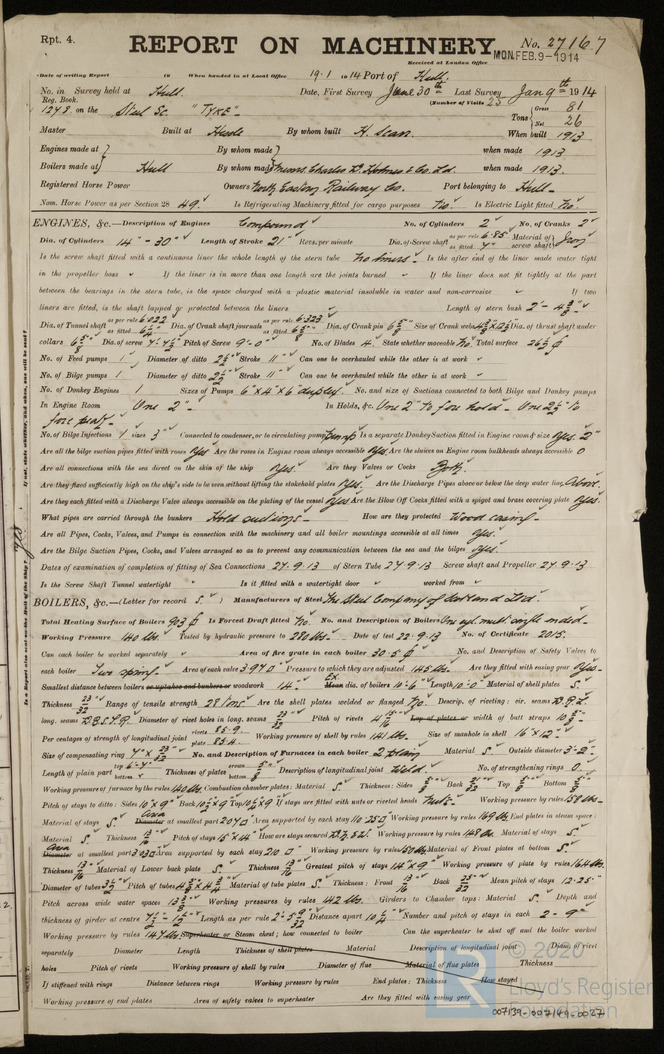 Rpt. 4.
REPORT ON MACHINERY
No. 27167
MON. FEB. 9-1914
Received at London Office
Date of writing Report 19 When handed in at Local Office 19.1 1914 Port of Hull.
No. in Survey held at Hull Date, First Survey June 30th Last Survey Jan 9th 1914
Reg. Book. (Number of Visits 23
1278 on the Steel Sc. "TYKE" Tons Gross 81 Net 26
Master Built at Hessle By whom built H. Scarr. When built 1913
Engines made at By whom made when made 1913
Boilers made at Hull By whom made Messrs. Charles D. Holmes & Co. Ld. when made 1913.
Registered Horse Power Owners North Eastern Railway Co. Port belonging to Hull
Nom. Horse Power as per Section 28 49. Is Refrigerating Machinery fitted for cargo purposes No. Is Electric Light fitted No.
ENGINES, &c.—Description of Engines Compound No. of Cylinders 2 No. of Cranks 2
Dia. of Cylinders 14" - 30" Length of Stroke 21" Revs. per minute Dia. of Screw shaft as per rule 6.85 as fitted 7" Material of screw shaft Iron
Is the screw shaft fitted with a continuous liner the whole length of the stern tube No liners. Is the after end of the liner made water tight
in the propeller boss If the liner is in more than one length are the joints burned If the liner does not fit tightly at the part
between the bearings in the stern tube, is the space charged with a plastic material insoluble in water and non-corrosive If two
liners are fitted, is the shaft lapped or protected between the liners Length of stern bush 2'-
Dia. of Tunnel shaft as per rule 6.022 as fitted Dia. of Crank shaft journals as per rule 6.323 as fitted Dia. of Crank pin Size of Crank webs Dia. of thrust shaft under
collars Dia. of screw Pitch of Screw 9'-0" No. of Blades 4 State whether moveable No. Total surface
No. of Feed pumps 1 Diameter of ditto Stroke 11" Can one be overhauled while the other is at work
No. of Bilge pumps 1 Diameter of ditto Stroke 11" Can one be overhauled while the other is at work
No. of Donkey Engines 1 Sizes of Pumps 6"x4"x6" duplex. No. and size of Suctions connected to both Bilge and Donkey pumps
In Engine Room One 2" In Holds, &c. One 2" to fore hold - One to
fore peak
No. of Bilge Injections 1 sizes 3" Connected to condenser, or to circulating pump Pump Is a separate Donkey Suction fitted in Engine room & size Yes. 2"
Are all the bilge suction pipes fitted with roses Yes Are the roses in Engine room always accessible Yes. Are the sluices on Engine room bulkheads always accessible 0
Are all connections with the sea direct on the skin of the ship Yes. Are they Valves or Cocks Both.
Are they fixed sufficiently high on the ship's side to be seen without lifting the stokehold plates Yes. Are the Discharge Pipes above or below the deep water line Above.
Are they each fitted with a Discharge Valve always accessible on the plating of the vessel Yes. Are the Blow Off Cocks fitted with a spigot and brass covering plate Yes.
What pipes are carried through the bunkers Hold suctions How are they protected Wood casing
Are all Pipes, Cocks, Valves, and Pumps in connection with the machinery and all boiler mountings accessible at all times Yes.
Are the Bilge Suction Pipes, Cocks, and Valves arranged so as to prevent any communication between the sea and the bilges Yes.
Dates of examination of completion of fitting of Sea Connections 27.9.13 of Stern Tube 27.9.13 Screw shaft and Propeller 27.9.13
Is the Screw Shaft Tunnel watertight Is it fitted with a watertight door worked from
BOILERS, &c.—(Letter for record S.) Manufacturers of Steel The Steel Company of Scotland Ltd.
Total Heating Surface of Boilers Is Forced Draft fitted No. No. and Description of Boilers One cyl. mult. single ended
Working Pressure 140 lbs Tested by hydraulic pressure to 280 lbs. Date of test 22.9.13 No. of Certificate 2015.
Can each boiler be worked separately Area of fire grate in each boiler 30.5 No. and Description of Safety Valves to
each boiler Two spring. Area of each valve 3.970 Pressure to which they are adjusted 145 lbs. Are they fitted with easing gear Yes
Smallest distance between boilers or uptakes and bunkers or woodwork 14" Ex. Mean dia. of boilers 10'-6" Length 10'-0" Material of shell plates S.
Thickness 23/32 Range of tensile strength 28 tons Are the shell plates welded or flanged No. Descrip. of riveting: cir. seams D.R.L.
long. seams D.B.S.T.R. Diameter of rivet holes in long. seams 23/32 Pitch of rivets Lap of plates or width of butt straps
Per centages of strength of longitudinal joint rivets 85.9 plate 85.4 Working pressure of shell by rules 141 lbs. Size of manhole in shell 16"x12"
Size of compensating ring 7"x 23/32 No. and Description of Furnaces in each boiler 2 plain Material S Outside diameter 3'-2"
Length of plain part top 6'-4" bottom Thickness of plates crown bottom Description of longitudinal joint Weld. No. of strengthening rings 0.
Working pressure of furnace by the rules 140 lbs. Combustion chamber plates: Material S Thickness: Sides Back Top Bottom
Pitch of stays to ditto: Sides 10"x9" Back Top If stays are fitted with nuts or riveted heads Nuts. Working pressure by rules 158 lbs.
Material of stays S. Area Diameter at smallest part 2070 Area supported by each stay Working pressure by rules 169 lbs. End plates in steam space:
Material S Thickness Pitch of stays 15"x14" How are stays secured D.N.&W. Working pressure by rules 148 lbs. Material of stays S.
Area Diameter at smallest part Area supported by each stay 210 Working pressure by rules 150 lbs. Material of Front plates at bottom S.
Thickness 13/16 Material of Lower back plate S. Thickness 13/16 Greatest pitch of stays 14"x9" Working pressure of plate by rules 164 lbs.
Diameter of tubes Pitch of tubes Material of tube plates S. Thickness: Front 13/16 Back 25/32 Mean pitch of stays 12.25
Pitch across wide water spaces Working pressures by rules 142 lbs. Girders to Chamber tops: Material S. Depth and
thickness of girder at centre Length as per rule Distance apart Number and pitch of stays in each 2 - 9"
Working pressure by rules 147 lbs. Superheater or Steam chest; how connected to boiler Can the superheater be shut off and the boiler worked
separately Diameter Length Thickness of shell plates Material Description of longitudinal joint Diam. of rivet
holes Pitch of rivets Working pressure of shell by rules Diameter of flue Material of flue plates Thickness
If stiffened with rings Distance between rings Working pressure by rules End plates: Thickness How stayed
Working pressure of end plates Area of safety valves to superheater Are they fitted with easing gear
© 2020
Lloyd's Register
Foundation
007139-007149-0027